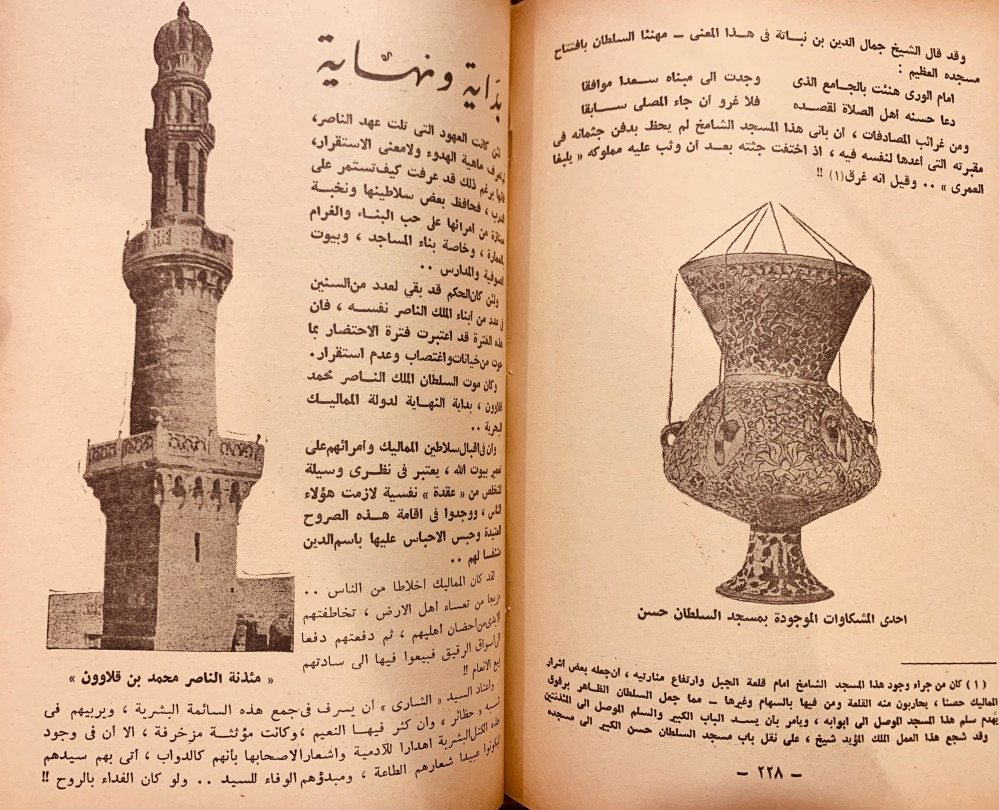 وقد قال الشيخ جمال الدين بن نباتة فى هذا المعنى ـ مهنئا السلطان بافتتاح
مسجده العظيم :
امام الورى هنئت بالجامع الذى وجدت الى مبناه سعدا موافقا
دعا حسنه أهل الصلاة لقصده فلا غرو أن جاء المصلى سابقا
ومن غرائب المصادفات ، ان بانى هذا المسجد الشامخ لم يحظ بدفن جثمانه فى
مقبرته التى اعدها لنفسه فيه ، اذ اختفت جثته بعد أن وثب عليه مملوكه « يلبغا
العمرى » .. وقيل انه غرق(١) !!
احدى المشكاوات الموجودة بمسجد السلطان حسن
(١) كان من جراء وجود هذا المسجد الشامخ امام قلعة الجبل وارتفاع منارتيه ، أن جعله بعض أشرار
المماليك حصنا ، يحاربون منه القلعة ومن فيها بالسهام وغيرها ـ مما جعل السلطان الظاهر برقوق
يهدم سلم هذا المسجد الموصل الى ابوابه ، ويأمر بأن يسد الباب الكبير والسلم الموصل الى المئذنتين
وقد شجع هذا العمل الملك المؤيد شيخ ، على نقل باب مسجد السلطان حسن الكبير الى مسجده
ـ ٢٢٨ ـ
بداية ونهاية
لئن كانت العهود التى تلت عهد الناصر،
تعرف ماهية الهدوء ولا معنى الاستقرار،
برغم ذلك قد عرفت كيف تستمر على
الدرب ، فحافظ بعض سلاطينها ونخبة
ممتازة من امرائها على حب البناء والغرام
بالعمارة ، وخاصة بناء المساجد ، وبيوت
الصوفية والمدارس ..
ولئن كان الحكم قد بقي لعدد من السنين
فى عدد من أبناء الملك الناصر نفسه ، فان
هذه الفترة قد اعتبرت فترة الاحتضار بما
حوت من خيانات واغتصاب وعدم استقرار.
وكان موت السلطان الملك الناصر محمد
قلاوون ، بداية النهاية لدولة المماليك
البحرية ..
وان فى اقبال سلاطين المماليك وأمرائهم على
تعمير بيوت الله ، يعتبر فى نظرى وسيلة
للتخلص من « عقدة » نفسية لازمت هؤلاء
الناس ، ووجدوا فى اقامة هذه الصروح
وحبس الاحباس عليها باسم الدين
متنفسا لهم ..
لقد كان المماليك أخلاطا من الناس ..
مزيجا من تعساء أهل الارض ، تخاطفتهم
الايدى من أحضان أهليهم ، ثم دفعتهم دفعا
الى أسواق الرقيق فبيعوا فيها الى سادتهم
بيع الانعام !!
واعتاد السيد « الشارى » أن يسرف فى جمع هذه السائمة البشرية ، ويربيهم فى
« حظائر » وان كثر فيها النعيم ، وكانت مؤثثة مزخرفة ، الا أن فى وجود
هذه الكتل البشرية اهدارا للآدمية واشعار الاصحابها بأنهم كالدواب ، أتى بهم سيدهم
ليكونوا عبيدا شعارهم الطاعة ، ومبدؤهم الوفاء للسيد .. ولو كان الفداء بالروح !!
« مئذنة الناصر محمد بن قلاوون »